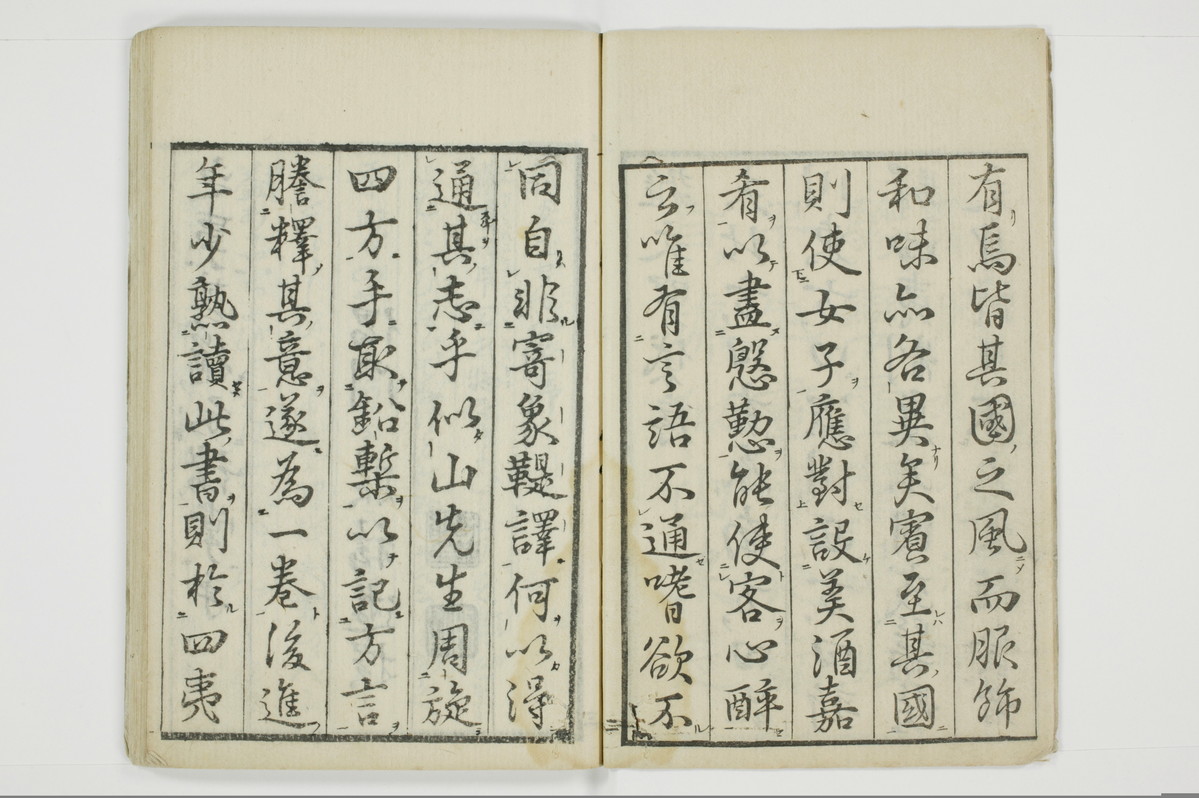 有焉皆其國之風而服飾
和味亦各異矣賓至其國
則使女子應對設美酒嘉
肴以盡慇懃能使客心醉
云唯有言語不通嗜欲不
同自非寄象鞮譯何以得
通其志乎似山先生周旋
四方手取鉛槧以記方言
謄釋其意遂為一卷後進
年少熟讀此書則於四夷